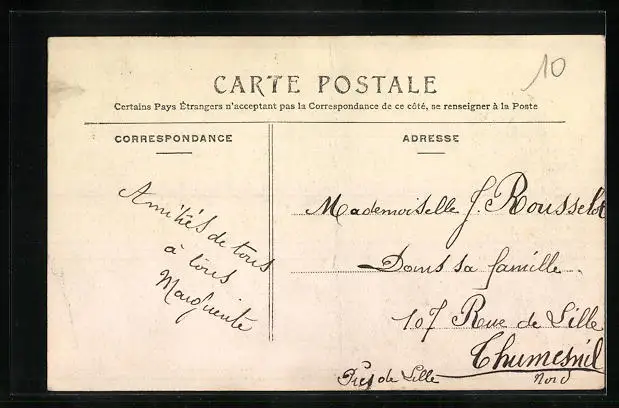 10
CARTE POSTALE
Certains Pays Étrangers n'acceptant pas la Correspondance de ce côté, se renseigner à la Poste
CORRESPONDANCE
Amitiés de tous
à tous
Marguerite
ADRESSE
Mademoiselle J. Rousselot
Dans sa famille
107 Rue de Lille
Thumesnil
Près de Lille
Nord